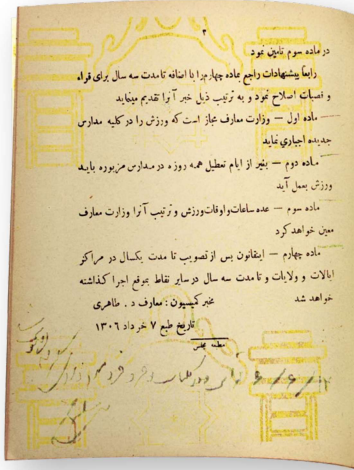 ۲
در ماده سوم تامین نمود
رابعاً پیشنهادات راجع بماده چهارم را با اضافه تا مدت سه سال برای قراء
و قصبات اصلاح نمود و به ترتیب ذیل خبر آنرا تقدیم مینماید
ماده اول — وزارت معارف مجاز است که ورزش را در کلیه مدارس
جدیده اجباری نماید
ماده دوم — بغیر از ایام تعطیل همه روزه در مدارس مزبوره باید
ورزش بعمل آید
ماده سوم — عده ساعات و اوقات ورزش و ترتیب آنرا وزارت معارف
معین خواهد کرد
ماده چهارم — اینقانون پس از تصویب تا مدت یکسال در مراکز
ایالات و ولایات و تا مدت سه سال در سایر نقاط بموقع اجرا گذاشته
خواهد شد
مخبر کمیسیون : معارف د . طاهری
تاریخ طبع ۷ خرداد ۱۳۰۶
مطبعه مجلس